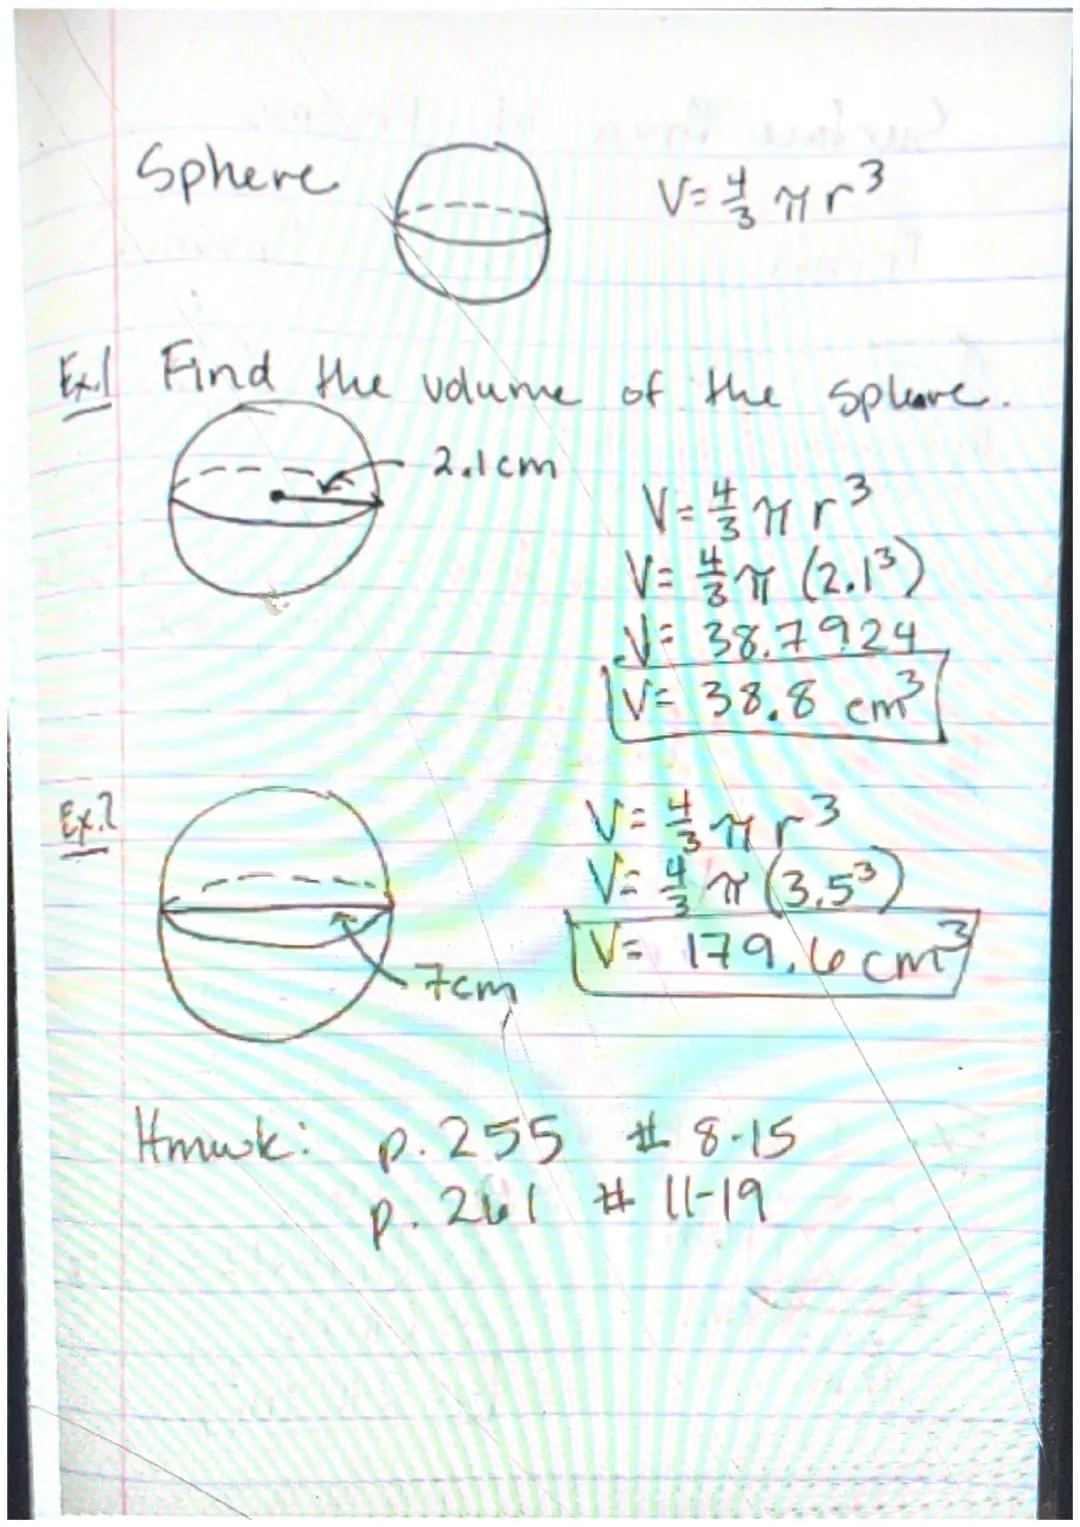 Sphere V = 4/3 π r³
Ex.1 Find the volume of the sphere.
2.1cm
V = 4/3 π r³
V = 4/3 π (2.1³)
V = 38.7924
V = 38.8 cm³
Ex.2
V = 4/3 π r³
V = 4/3 π (3.5³)
V = 179.6 cm³
7cm
Hmwk: p. 255 # 8-15
p. 261 # 11-19